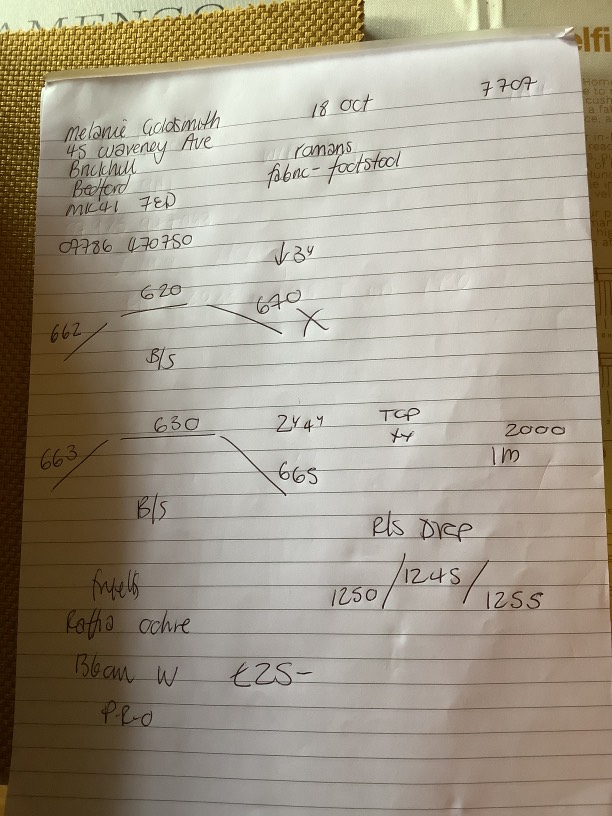 AMENCO
elfi
7707
18 Oct
Melanie Goldsmith
45 Waveney Ave
Brickhill
Bedford
MK41 7ED
07786 470750
romans
fabric - footstool
↓34
620
640
662
X
B/S
630
2Y 4Y
TCP
2000
663
665
1m
B/S
R/s Drop
1250 / 1245 / 1255
Raffia ochre
136cm W £25-